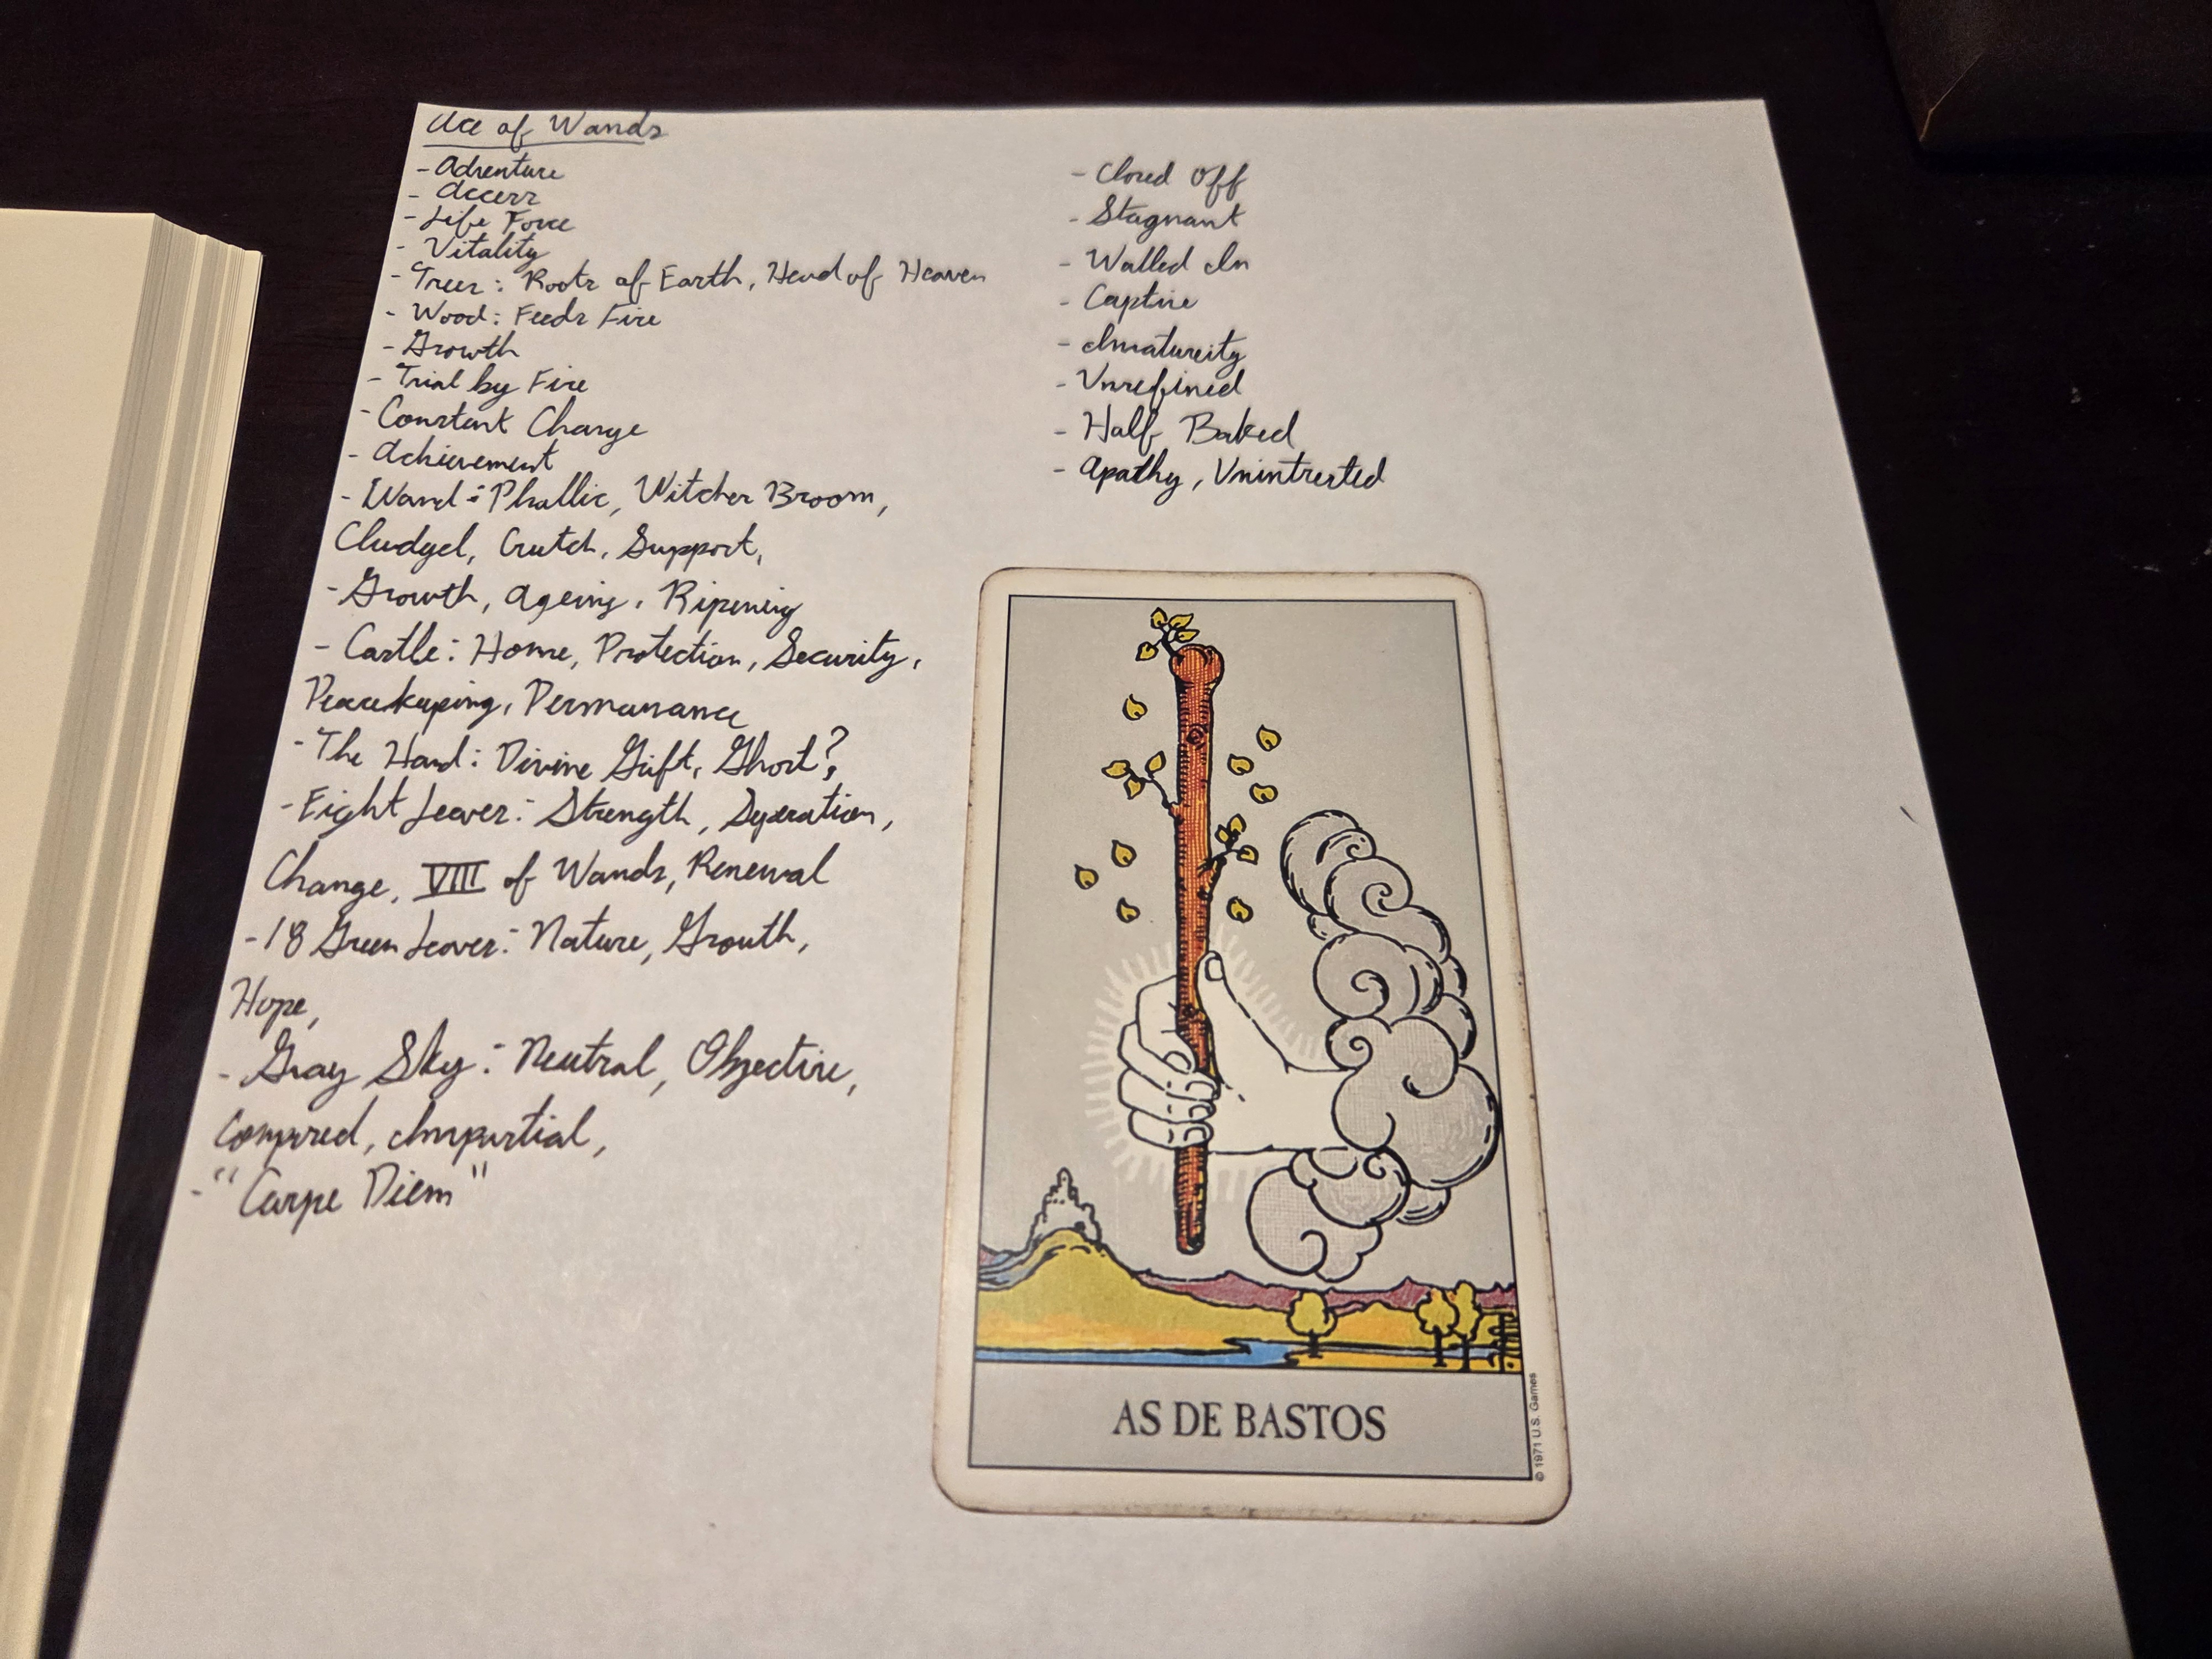 Ace of Wands
- Adventure
- Access
- Life Force
- Vitality
- Trees: Roots of Earth, Head of Heaven
- Wood: Feeds Fire
- Growth
- Trial by Fire
- Constant Change
- Achievement
- Wand: Phallic, Witches Broom,
Cludgel, Crutch, Support,
- Growth, Ageing, Ripening
- Castle: Home, Protection, Security,
Peacekeeping, Permanance
- The Hand: Divine Gift, Ghost?,
- Eight Leaves: Strength, Seperation,
Change, VIII of Wands, Renewal
- 18 Green Leaves: Nature, Growth,
Hope,
- Gray Sky: Neutral, Objective,
Composed, Impartial,
- "Carpe Diem"
- Closed Off
- Stagnant
- Walled In
- Captive
- Immatureity
- Unrefined
- Half Baked
- Apathy, Unintrested
AS DE BASTOS
© 1971 U.S. Games